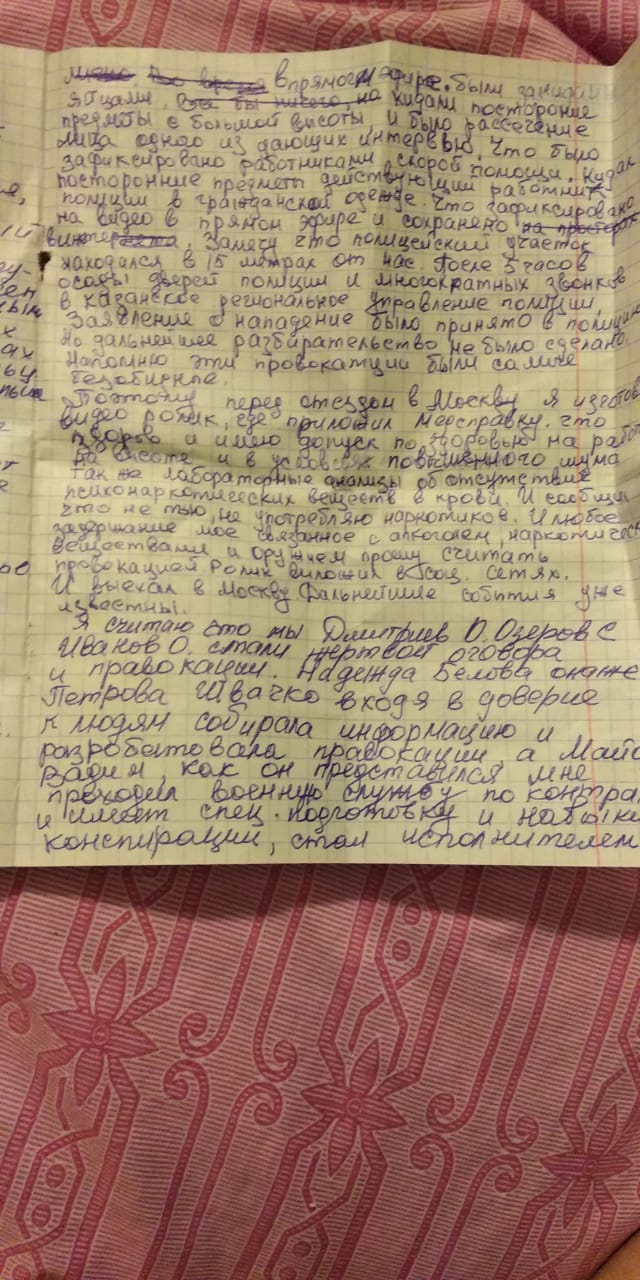 в прямом эфире. были закидан
яйцами, все бы ничего, но кидали посторонние
предметы с большой высоты, и было рассечение
лица одного из дающих интервью. Что было
зафиксировано работниками скорой помощи. Кидал
посторонние предметы действующий работник
полиции в гражданской одежде. Что зафиксировано
на видео в прямом эфире и сохранено на просторах
Замечу что полицейский участок
находился в 15 метрах от нас. После 5 часов
осады дверей полиции и многократных звонков
в казанское региональное управление полиции,
Заявление о нападение было принято в полицию
Но дальнейшее разбирательство не было сделано.
Напомню эти провокатции были самые
безобидные.
Поэтому перед отездом в Москву я изготов
видео ролик, где приложил медсправку. что
здоров и имею допуск по здоровью на работ
на высоте и в условиях повышенного шума
Так же лабораторные анализы об отсутствие
психонаркотических веществ в крови. И сообщил
что не пью, не употребляю наркотиков. И любое
задержание мое связанное с алкоголем, наркотичес
веществами и оружием прошу считать
провокацией Ролик выложил в соц. сетях.
И выехал в Москву. Дальнейшие события уже
известны.
Я считаю что мы Дмитриев О. Озеров С
Иванов О. стали жертвой оговора
и правокации. Надежда Белова она же
Петрова Швачко входя в доверие
к людям собирала информацию и
розробатовала правокации а Майо
Вадим, как он представился мне
проходил военную службу по контра
и имеет спец. подготовку и навыки
конспирации, стал исполнителем